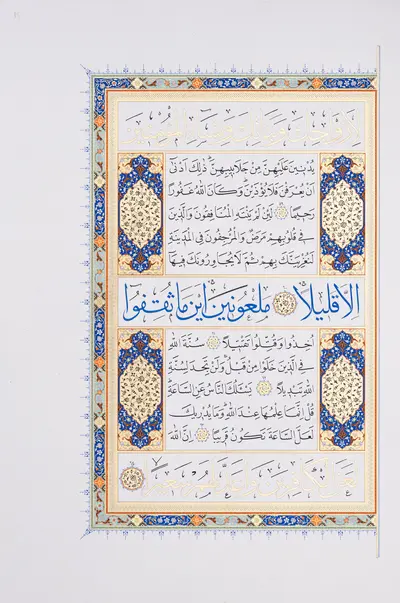 يُدْنِينَ عَلَيْهِنَّ مِنْ جَلَابِيبِهِنَّ ذٰلِكَ اَدْنٰى
اَنْ يُعْرَفْنَ فَلَا يُؤْذَيْنَ وَكَانَ اللّٰهُ غَفُورًا
رَحِيمًا لَئِنْ لَمْ يَنْتَهِ الْمُنَافِقُونَ وَالَّذِينَ
فِى قُلُوبِهِمْ مَرَضٌ وَالْمُرْجِفُونَ فِى الْمَدِينَةِ
لَنُغْرِيَنَّكَ بِهِمْ ثُمَّ لَا يُجَاوِرُونَكَ فِيهَا
اِلَّا قَلِيلًا مَلْعُونِينَ اَيْنَ مَا ثُقِفُوا
اُخِذُوا وَقُتِّلُوا تَقْتِيلًا سُنَّةَ اللّٰهِ
فِى الَّذِينَ خَلَوْا مِنْ قَبْلُ وَلَنْ تَجِدَ لِسُنَّةِ
اللّٰهِ تَبْدِيلًا يَسْـَٔلُكَ النَّاسُ عَنِ السَّاعَةِ
قُلْ اِنَّمَا عِلْمُهَا عِنْدَ اللّٰهِ وَمَا يُدْرِيكَ
لَعَلَّ السَّاعَةَ تَكُونُ قَرِيبًا اِنَّ اللّٰهَ